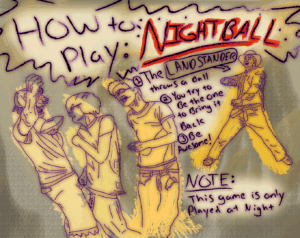 How to:
Play:
NIGHTBALL
① The LANDSTANDER
throws a Ball
② You try to
Be the one
to Bring it
Back
③ Be
Awesome!
NOTE:
This game is only
Played at Night